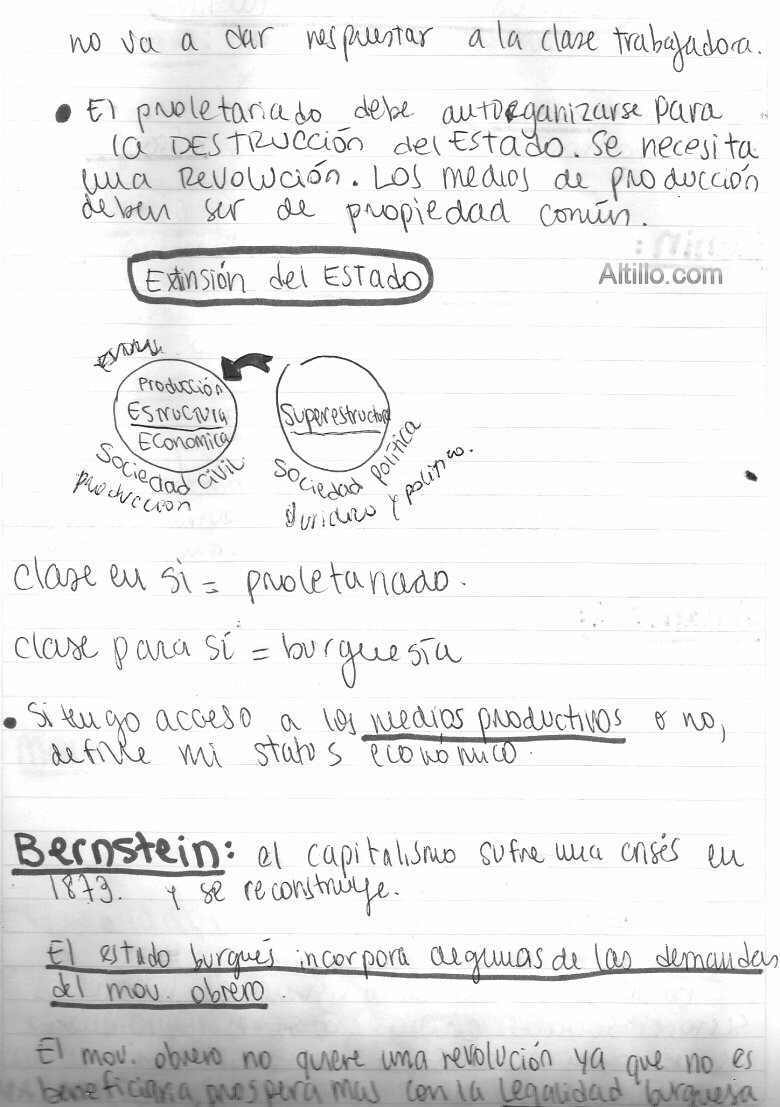 no va a dar respuestar a la clase trabajadora.
• El proletariado debe autorganizarse para
la DESTRUCCIÓN del ESTADO. Se necesita
una REVOLUCIÓN. LOS medios de producción
deben ser de propiedad común.
Altillo.com
Extinsión del ESTADO
Producción
ESTRUCTURA
Economica
Sociedad civil
producción
Superestructura
Sociedad política
Juridico y politico.
clase en sí = proletariado.
clase para sí = burguesía
• Si tengo acceso a los medios productivos o no,
define mi status económico.
Bernstein: el capitalismo sufre una crisis en
1873. y se reconstruye.
El estado burgués incorpora algunas de las demandas
del mov. obrero.
El mov. obrero no quiere una revolución ya que no es
beneficiaria, prospera mas con la legalidad burguesa